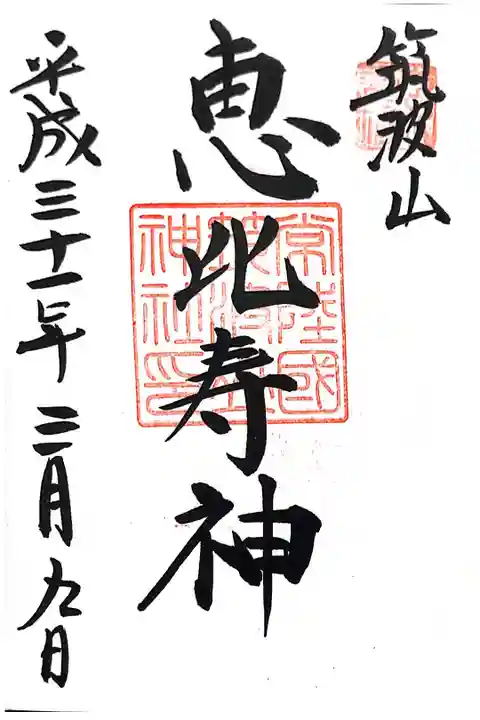 筑波山
恵比寿神
常陸國
筑波山
神社印
平成三十一年 三月九日